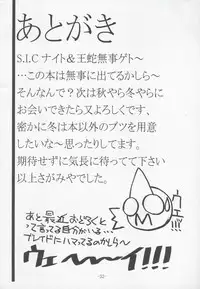 あとがき
S.I.C ナイト&王蛇無事ゲト〜
…この本は無事に出てるかしら〜
そんなんで？次は秋やら冬やらに
お会いできたら又よろしくです、
密かに冬は本以外のブツを用意
したいな〜思ったりしてます。
期待せずに気長に待ってて下さい
以上さがみやでした。
ウェ!!
あと最近おどろくと
って言ってる自分がいる…
ブレイドにハマってるのかしら〜
ウェ〜〜イ!!!
-32-